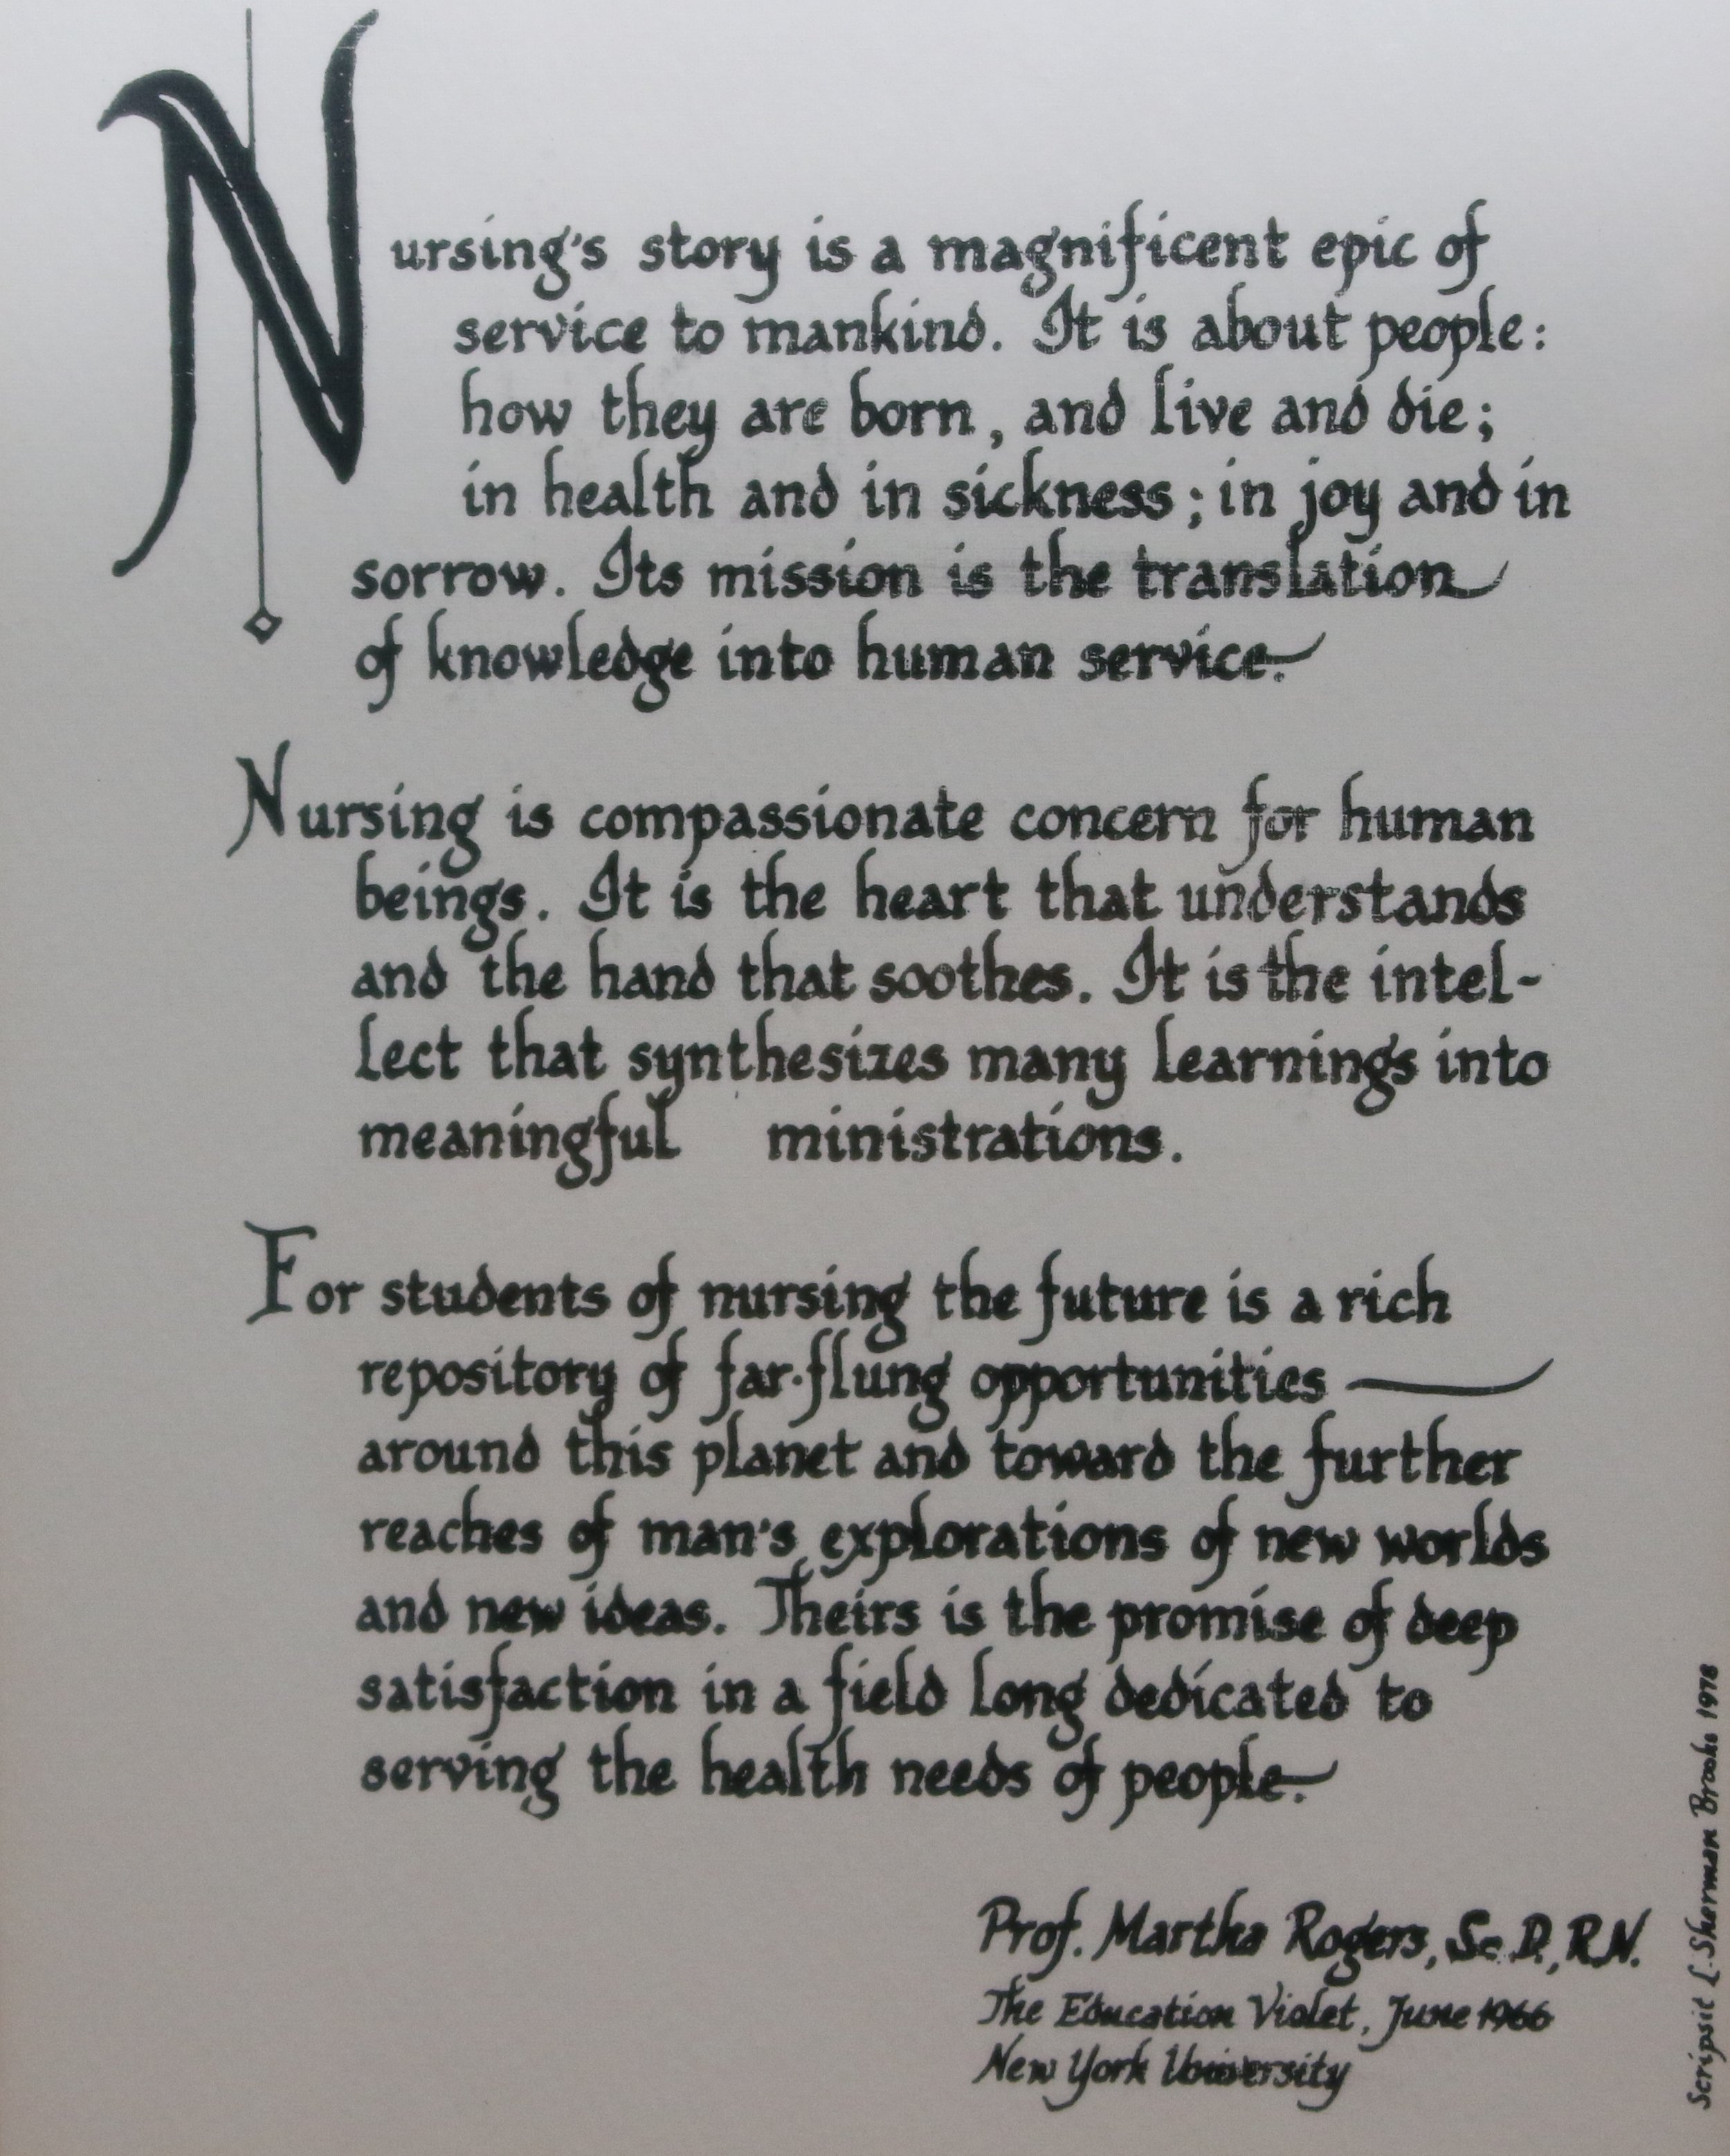 Nursing's story is a magnificent epic of
service to mankind. It is about people:
how they are born, and live and die;
in health and in sickness; in joy and in
sorrow. Its mission is the translation
of knowledge into human service.
Nursing is compassionate concern for human
beings. It is the heart that understands
and the hand that soothes. It is the intel-
lect that synthesizes many learnings into
meaningful ministrations.
For students of nursing the future is a rich
repository of far-flung opportunities —
around this planet and toward the further
reaches of man's explorations of new worlds
and new ideas. Theirs is the promise of deep
satisfaction in a field long dedicated to
serving the health needs of people.
Prof. Martha Rogers, Sc.D., R.N.
The Education Violet, June 1966
New York University
Scripsit L. Sherman Brooks 1978